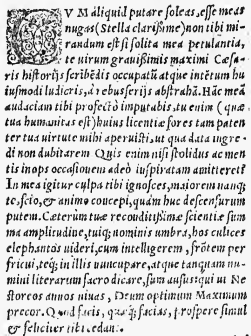 CVM aliquid putare soleas, esse meas
nugas (Stella clarissime) non tibi mi-
randum est si solita mea petulantia,
te uirum grauissimis maximi Cæsa-
ris historijs scribēdis occupatū atque intētum hu
iusmodi ludicris, à rebus serijs abstrahā. Hāc meā
audaciam tibi profectò imputabis, tu enim (quæ
tua humanitas est) huius licentiæ fores tam paten
ter tua uirtute mihi aperuisti, ut qua data ingre-
di non dubitarem. Quis enim nisi stolidus ac men
tis inops occasionem adeò inspiratam amitteret?
In mea igitur culpa tibi ignosces, maiorem nanq;
te, scio, & animo concepi, quàm huc descensurum
putem. Cæterùm tuæ reconditissimæ scientiæ sum
ma amplitudine, tuiq; nominis umbra, hos culices
elephantos uideri, cum intelligerem, frōtem per
fricui, teq; in illis nuncupare, atque tanquam nu-
mini literarum sacro dicare, sum ausus qui ut Ne
storeos annos uiuas, Deum optimum Maximum
precor. Quod facis, quæq; facias, prospere simul
& feliciter tibi cedant.